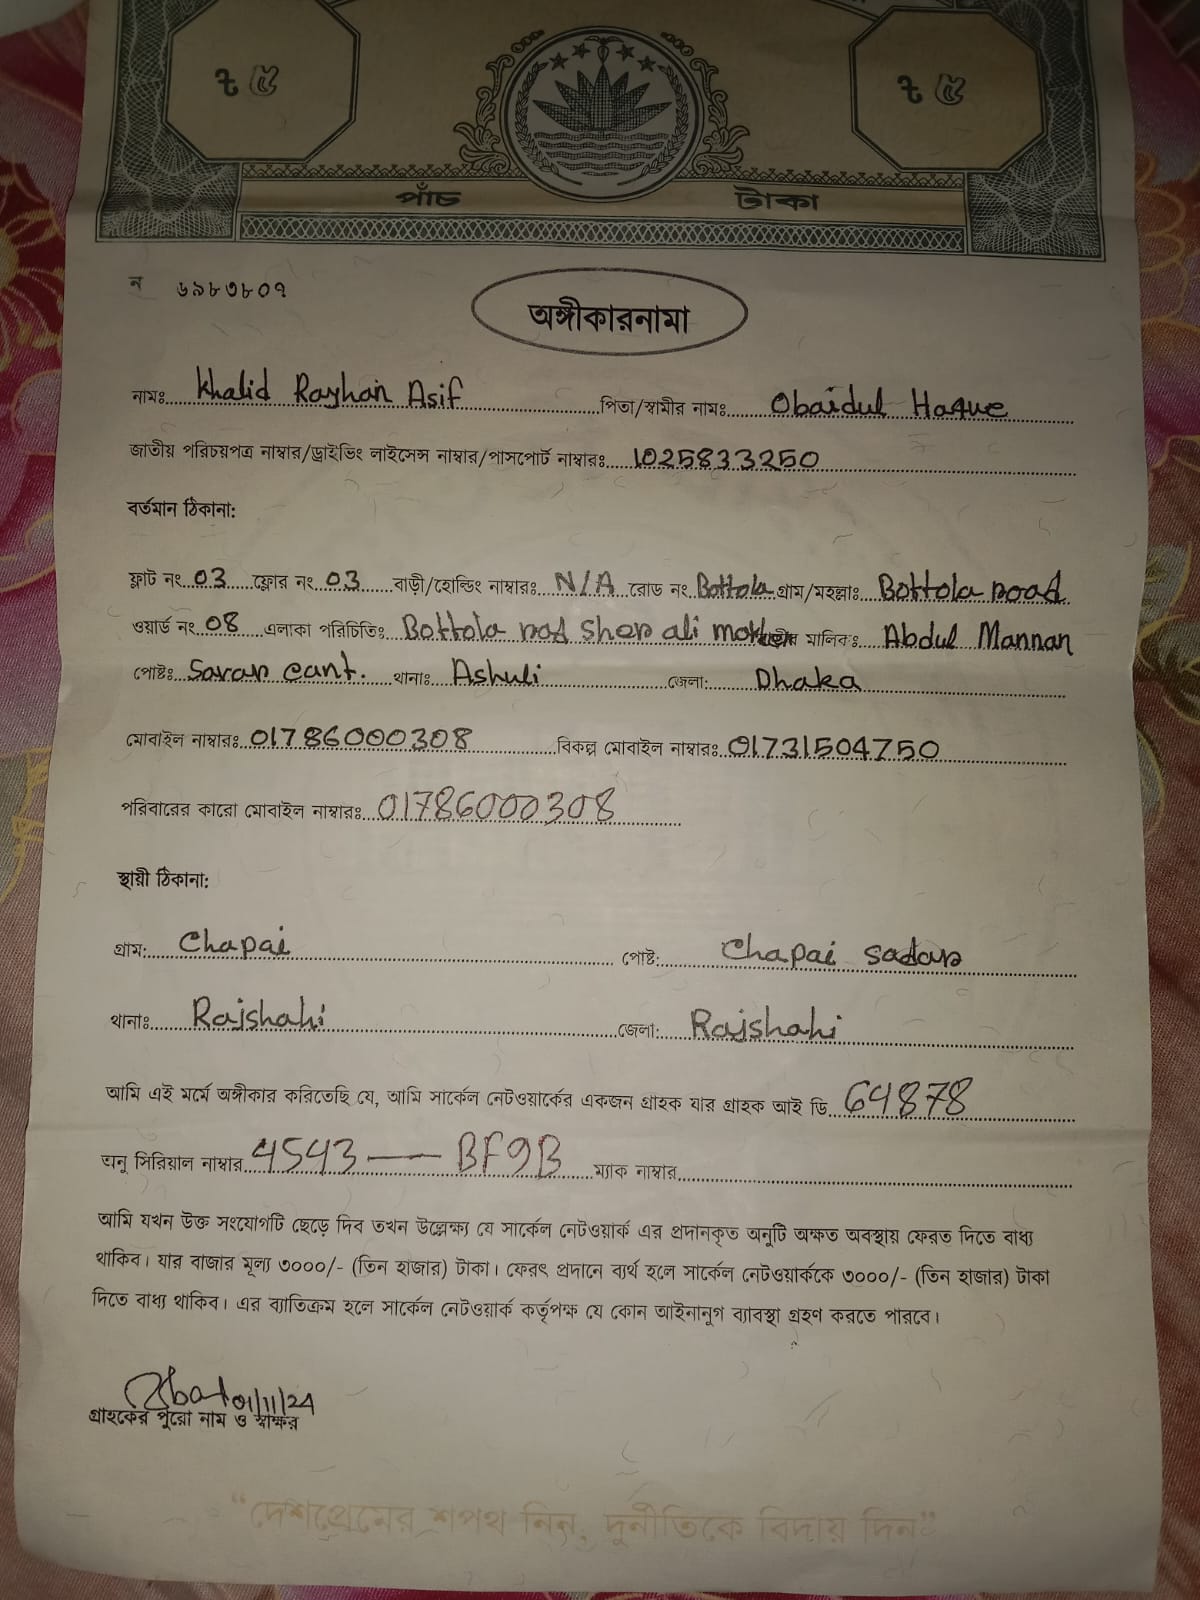 ৳ ৫ ৳ ৫
পাঁচ টাকা
ন ৬৯৮৩৮০৭
অঙ্গীকারনামা
নামঃ Khalid Rayhan Asif পিতা/স্বামীর নামঃ Obaidul Haque
জাতীয় পরিচয়পত্র নাম্বার/ড্রাইভিং লাইসেন্স নাম্বার/পাসপোর্ট নাম্বারঃ 1025833250
বর্তমান ঠিকানা:
ফ্লাট নং 03 ফ্লোর নং 03 বাড়ী/হোল্ডিং নাম্বারঃ N/A রোড নং Bottola গ্রাম/মহল্লাঃ Bottola road
ওয়ার্ড নং 08 এলাকা পরিচিতিঃ Bottola rod Sher ali মালিকঃ Abdul Mannan
পোষ্টঃ Savar cant. থানাঃ Ashuli জেলা: Dhaka
মোবাইল নাম্বারঃ 01786000308 বিকল্প মোবাইল নাম্বারঃ 01731504750
পরিবারের কারো মোবাইল নাম্বারঃ 01786000308
স্থায়ী ঠিকানা:
গ্রাম: Chapai পোষ্ট: Chapai sadar
থানাঃ Rajshahi জেলা: Rajshahi
আমি এই মর্মে অঙ্গীকার করিতেছি যে, আমি সার্কেল নেটওয়ার্কের একজন গ্রাহক যার গ্রাহক আই ডি 64878
অনু সিরিয়াল নাম্বার 4543 — BF9B ম্যাক নাম্বার
আমি যখন উক্ত সংযোগটি ছেড়ে দিব তখন উল্লেক্ষ্য যে সার্কেল নেটওয়ার্ক এর প্রদানকৃত অনুটি অক্ষত অবস্থায় ফেরত দিতে বাধ্য
থাকিব। যার বাজার মূল্য ৩০০০/- (তিন হাজার) টাকা। ফেরৎ প্রদানে ব্যর্থ হলে সার্কেল নেটওয়ার্ককে ৩০০০/- (তিন হাজার) টাকা
দিতে বাধ্য থাকিব। এর ব্যাতিক্রম হলে সার্কেল নেটওয়ার্ক কর্তৃপক্ষ যে কোন আইনানুগ ব্যাবস্থা গ্রহণ করতে পারবে।
01/11/24
গ্রাহকের পুরো নাম ও স্বাক্ষর
“দেশপ্রেমের শপথ নিন, দুর্নীতিকে বিদায় দিন”